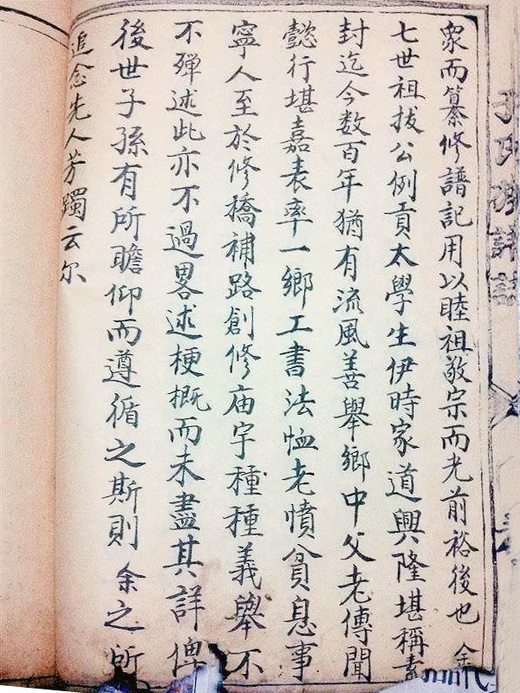 衆而纂修譜記用以睦祖敬宗而光前裕後也余
七世祖拔公例貢太學生伊時家道興隆堪稱素
封迄今数百年猶有流風善舉鄉中父老傳聞
懿行堪嘉表率一鄉工書法恤老憤貧息事
寧人至於修橋補路創修庙宇種種義舉不
不殫述此亦不過畧述梗概而未盡其詳俾
後世子孫有所瞻仰而遵循之斯則余之所
追念先人芳躅云尔